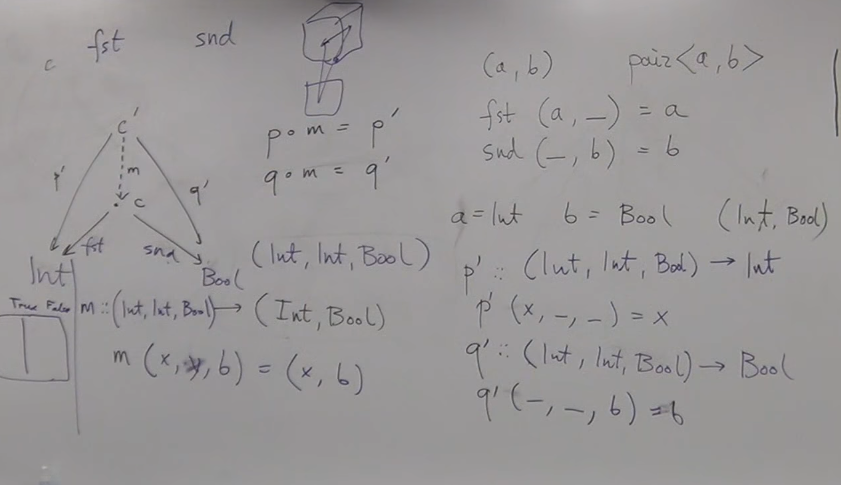 c fst snd
c'
p' m q'
c
fst snd
Int Bool
True False
p ∘ m = p'
q ∘ m = q'
(Int, Int, Bool)
m :: (Int, Int, Bool) → (Int, Bool)
m (x, y, b) = (x, b)
(a, b) pair<a, b>
fst (a, _) = a
snd (_, b) = b
a = Int b = Bool (Int, Bool)
p' :: (Int, Int, Bool) → Int
p' (x, _, _) = x
q' :: (Int, Int, Bool) → Bool
q' (_, _, b) = b